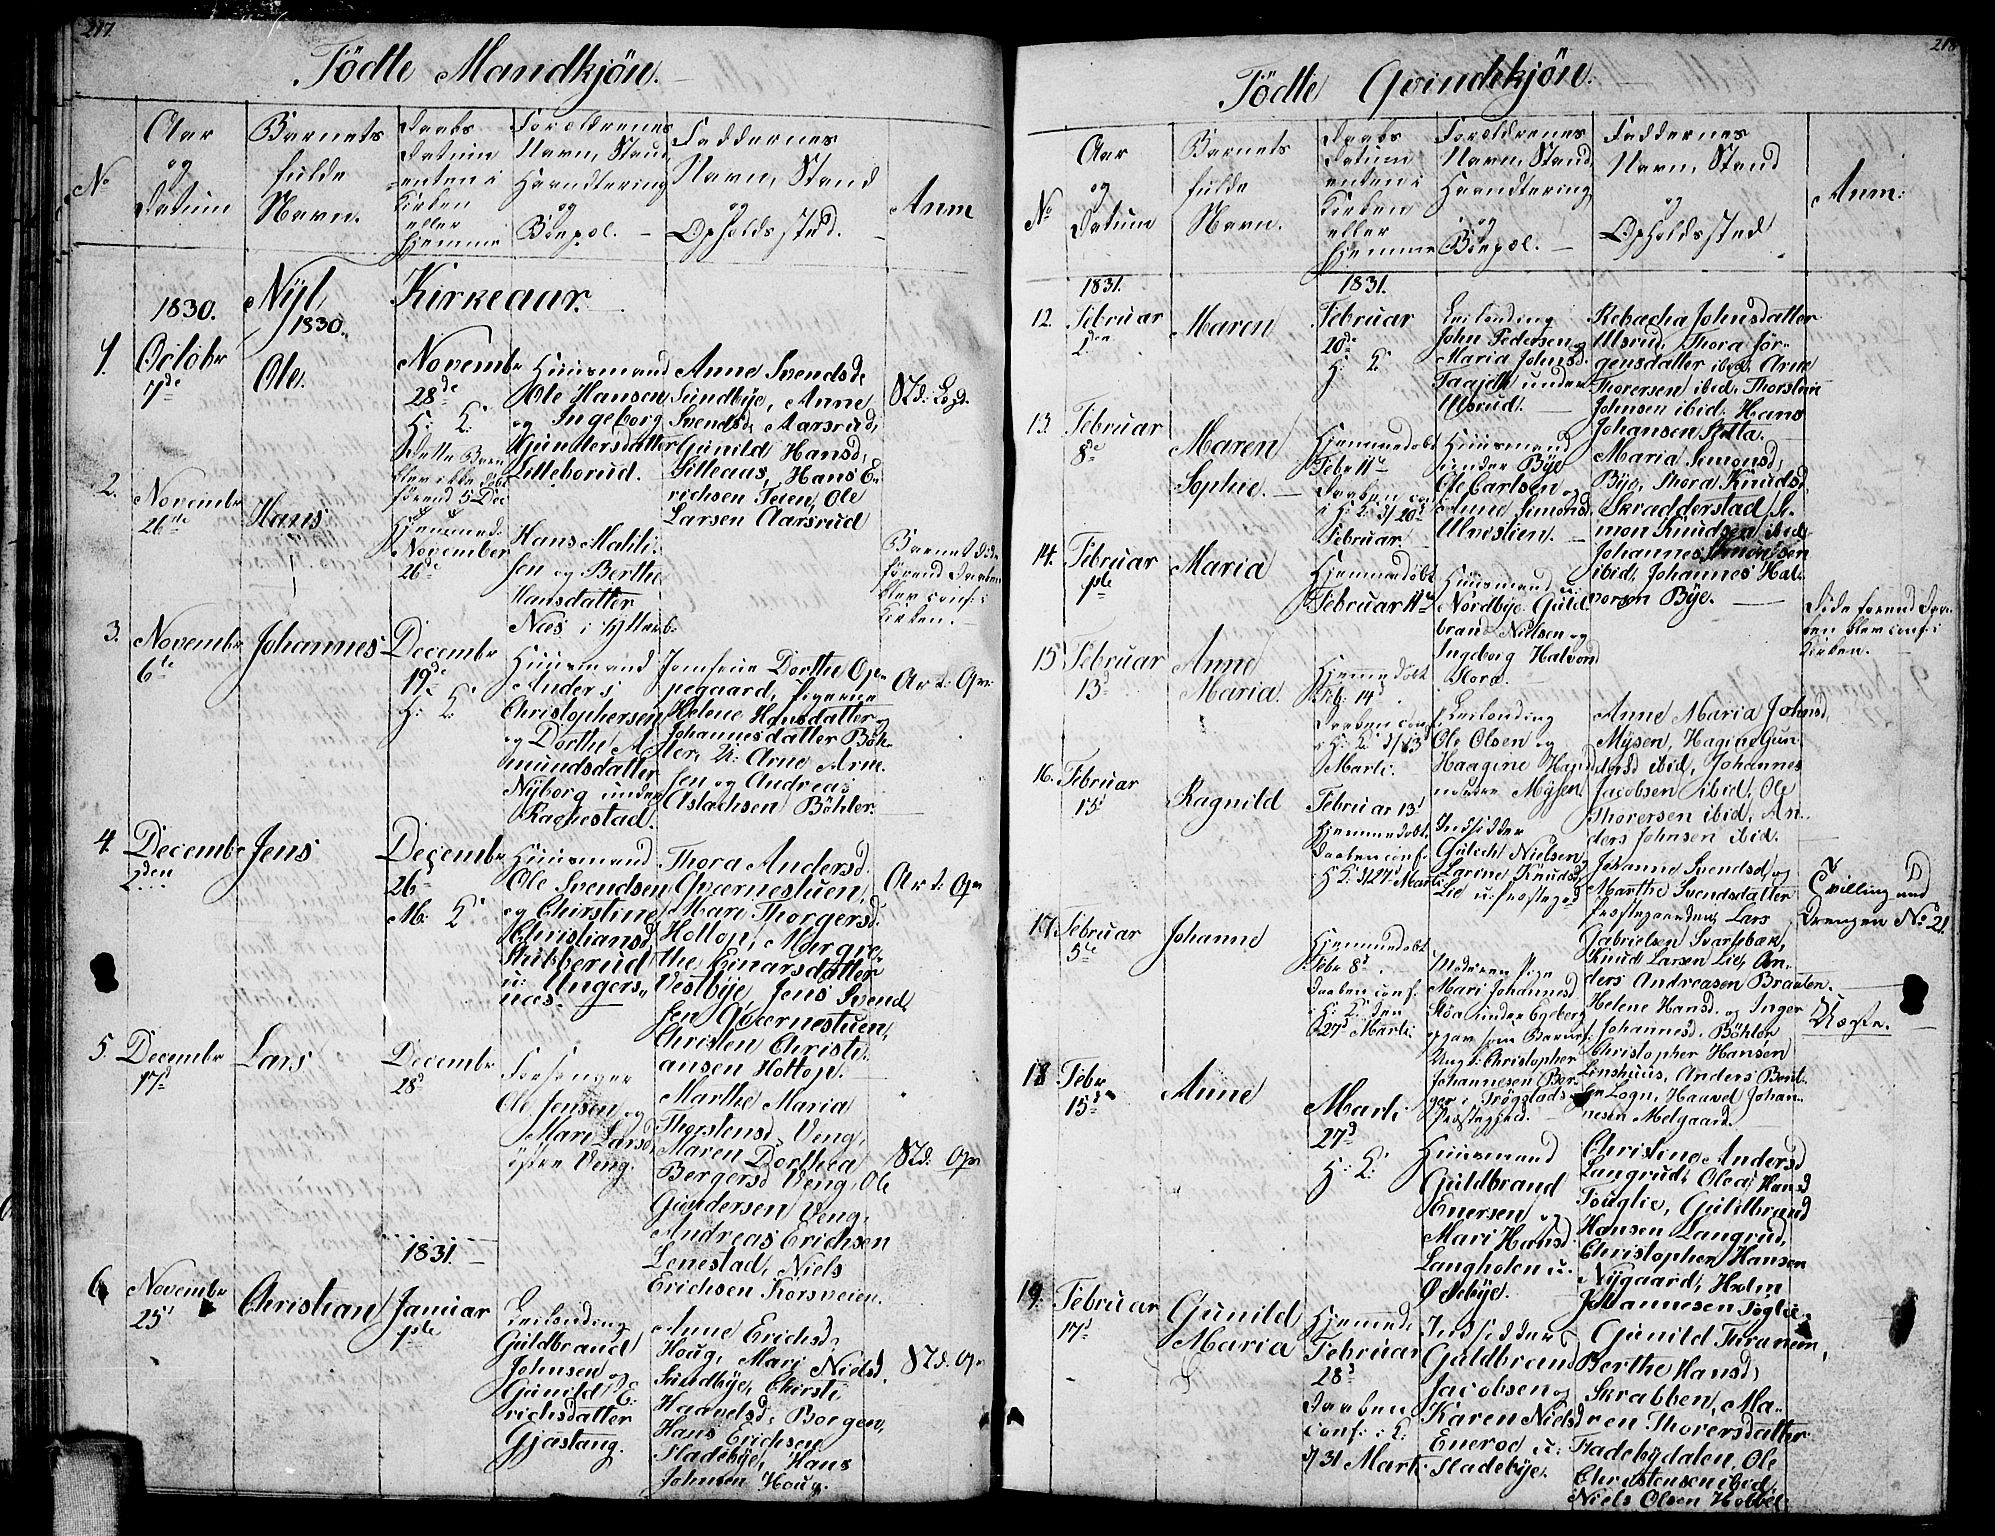 217
Födte Mandkjön.
No
Aar
og
Datum
Barnets
fulde
Navn.
Daabs
Datum
enten i
Kirken
eller
hjemme
Forældrenes
Navn, Stand
Haandtering
og
Boepæl.
Faddernes
Navn, Stand
og
Opholdssted.
Anm
1830.
Nyt
1830.
Kirkeaar.
1.
Octobr
7de
Ole.
Novembr
28de
H: K:
Dette Barn
blev ikke döbt
förend 5 Dec
Huusmand
Ole Hansen
og Ingeborg
Gundersdatter
Lilleborud.
Anne Svendsd:
Sundbye, Anne
Svendsd. Aarsrud,
Gunild Hansd,
Lilleaas, Hans E-
richsen Teien, Ole
Larsen Aarsrud
2.
Novembr
26de
Hans
Hjemmed:
November
26de
Hans Mathi-
sen og Berthe
Hansdatter
Næs i
Barnet döde
förend Daaben
blev conf: i
Kirken.
3.
Novembr
6te
Johannes
Decembr
19de
H: K:
Huusmand
Anders
Christophersen
og Dorthe A-
mundsdatter
Nyborg under
Ragnestad.
Jomfrue Dorthe Op-
pegaard, Pigerne
Helene Hansdatter og
Johannesdatter Böh-
ler, U: Arne Arne-
sen og Andreas
Aslachsen Böhler.
4.
Decembr
2den
Jens
Decembr
26
M: K:
Huusmand
Ole Svendsen
og Chirstine
Christiansd
Stubberud
u: Ungers-
næs.
Thora Andersd.
Qværnestuen,
Mari Thorgersd.
Hollop, Margre-
the Einarsdatter
Vestbye, Jens Svend
sen Qværnestuen,
Christen Christi-
ansen Hollop.
5
Decembr
17d
Lars
Decembr
28d
Forsanger
Ole Jensen og
Mari Larsd.
östre Veng.
Marthe Maria
Thorstensd Veng,
Maren Dorthea
Bergersd Veng, Ole
Gundersen Veng,
Andreas Erichsen
Lenestad, Niels
Erichsen Korsveien.
1831.
6
Novembr
25d
Christian
Januar
1ste
Leilending
Guldbrand
Johnsen og
Gunild E-
richsdatter
Gjastang.
Anne Erichsd:
Houg, Mari Nielsd.
Sundbye, Chirsti
Haavelsd, Borgen,
Hans Erichsen
Sladebye, Hans
Johnsen Houg.
218
Födte Qvindekjön.
No
Aar
og
Datum
Barnets
fulde
Navn.
Daabs
Datum
enten i
Kirken
eller
hjemme
Forældrenes
Navn, Stand
Haandtering
og
Boepæl.
Faddernes
Navn, Stand
og
Opholdssted
Anm:
1831.
1831.
12.
Februar
2den
Maren
Februar
20de
H: K:
Leilending
John Pedersen og
Maria Johnsd.
under
Ulsrud.
Rebacha Johnsdatter
Ulsrud, Thora Jör-
gensdatter ibid, Arne
Thorersen ibid, Thorsten
Johnsen ibid, Hans
Johansen
13.
Februar
8de
Maren
Sophie.
Hjemmedöbt
Febr 11te
Daaben conf:
i H: K: d/ 20d
Februar
Huusmand
under Bye
Ole Carlsen og
Anne Simonsd.
Ulvistien.
Maria Simonsd,
Bye, Thora Knudsd,
Skradderstad Si-
mon Knudsen ibid
Johannes Simonsen
ibid, Johannes Hal-
vorsen Bye.
14.
Februar
1ste
Maria
Hjemmedöbt
Februar 11te
Huusmand u:
Nordbye Guld-
brand Nielsen og
Ingeborg Halvorsd
Mora.
Döde forend Daa-
ben blev conf: i
Kirken.
15
Februar
13d
Anne
Maria.
Hjemmedöbt
Feb: 14d
Daaben conf:
i H: K: d/ 13d
Marti.
Leilending
Ole Olsen og
Haagine Hansd
nordre Mysen
Anne Maria Johnsd,
Mysen, Hagine Gun-
dersd ibid, Johannes
Jacobsen ibid, Ole
Thorersen ibid, An-
ders Johnsen ibid.
16.
Februar
15d
Ragnild
Februar 15d
hjemmedobt
daaben conf:
i H K: d/27 Marti
Indsidder
Gulich Nielsen og
Larine Knudsd,
Lie u: Prestegrd
Johanne Svendsd, og
Marthe Svendsdatter
Prestegaarden, Lars
Gabrielsen Svarlebæk,
Knud Larsen Lie, An-
ders Andreasen Braaten.
Tvilling med
Drengen No 21
17.
Februar
5te
Johanne
Hjemmedöbt
Febr 8d
Daaben conf:
i H: K: den
27d Marti.
Moderen Pige
Mari Johannesd
Moa under Egeberg
opgav som Barnef:
Ung: Christopher
Johannesen Ber-
ger i Tröggstads
Prestegjeld.
Helene Hansd. og Inger
Johannesd. Böhler
Christopher Hansen
Linshuus, Anders Bent-
sen Logn, Haavel Johan-
nesen Melgaard.
Uægte.
18
Febr
15d
Anne
Marti
27d
H: K:
Huusmand
Guldbrand
Enersen og
Mari Hansd.
Langholen u:
Ostebye.
Christine Andersd
Langrud, Olea Hansd
Fouglie, Guldbrand
Hansen Langrud,
Christopher Hansen
Nygaard, Holm
Johannesen Foglie.
19.
Februar
17d
Gunild
Maria
Hjemmd:
Februar
28d
Daaben
conf: i K:
d/ 31 Marti
Indsidder
Guldbrand
Jacobsen og
Karen Nielsd
Eneroe u:
Sladebye.
Gunild Thranem,
Berthe Hansd,
Skrabben, Ma-
ren Thorersdatter
Fladebydalen, Ole
Christensen ibid,
Niels Olsen Holbek